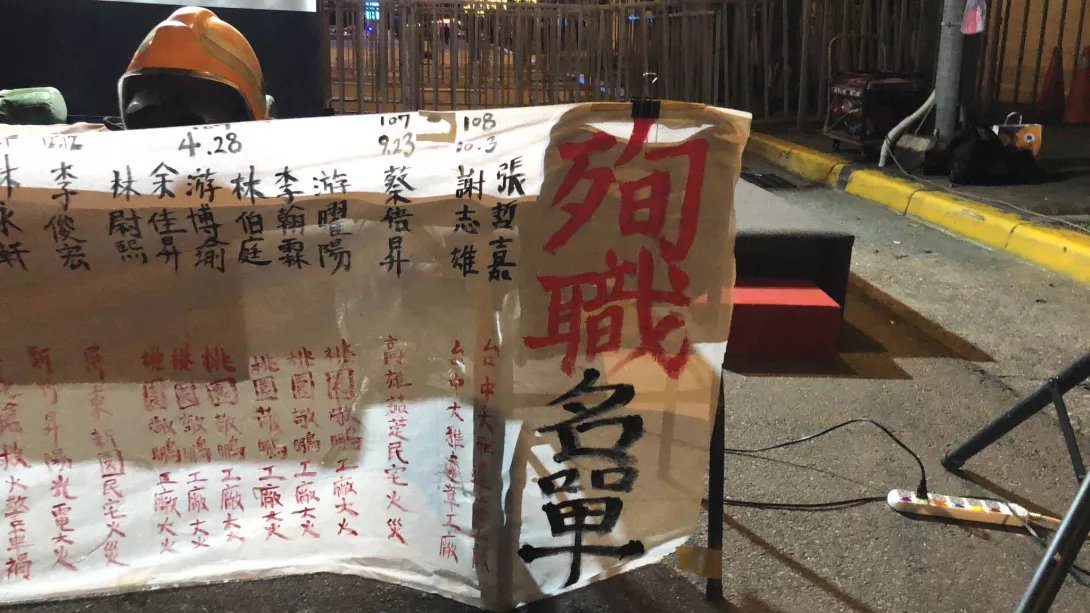 殉職
名單
108
10.3
張哲嘉
謝志雄
台中大雅
台中大雅章工廠
107
9.23
蔡倍昇
高雄茄萣民宅火災
4.28
游曜陽
李翰霖
林伯庭
游博瑜
余佳昇
林尉熙
桃園敬鵬工廠大火
桃園敬鵬工廠大火
桃園敬鵬工廠大火
桃園敬鵬工廠大火
桃園敬鵬工廠大火
桃園敬鵬工廠大火
李俊宏
屏東新園民宅火災
林永軒
新竹昇陽光電大火
火警至車禍